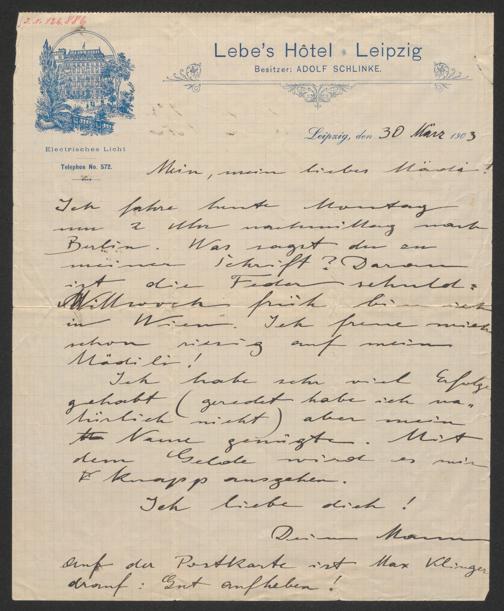 Lebe's Hôtel Leipzig
Besitzer: ADOLF SCHLINKE.
Electrisches Licht
Telephon No. 572.
Leipzig, den 30 März 1903
Mein, mein liebes Mädi!
Ich fahre heute Montag
um 2 Uhr nachmittag nach
Berlin. Was sagst du zu
meiner Schrift? Daran
ist die Feder schuld:
Mittwoch früh bin ich
in Wien. Ich freue mich
schon riesig auf mein
Mädili!
Ich habe sehr viel Erfolg
gehabt (geredet habe ich na-
türlich nicht) aber mein
Name genügte. Mit
dem Gelde wird es mir
knapp ausgehen.
Ich liebe dich!
Dein Mann
Auf der Postkarte ist Max Klinger
drauf: Gut aufheben!